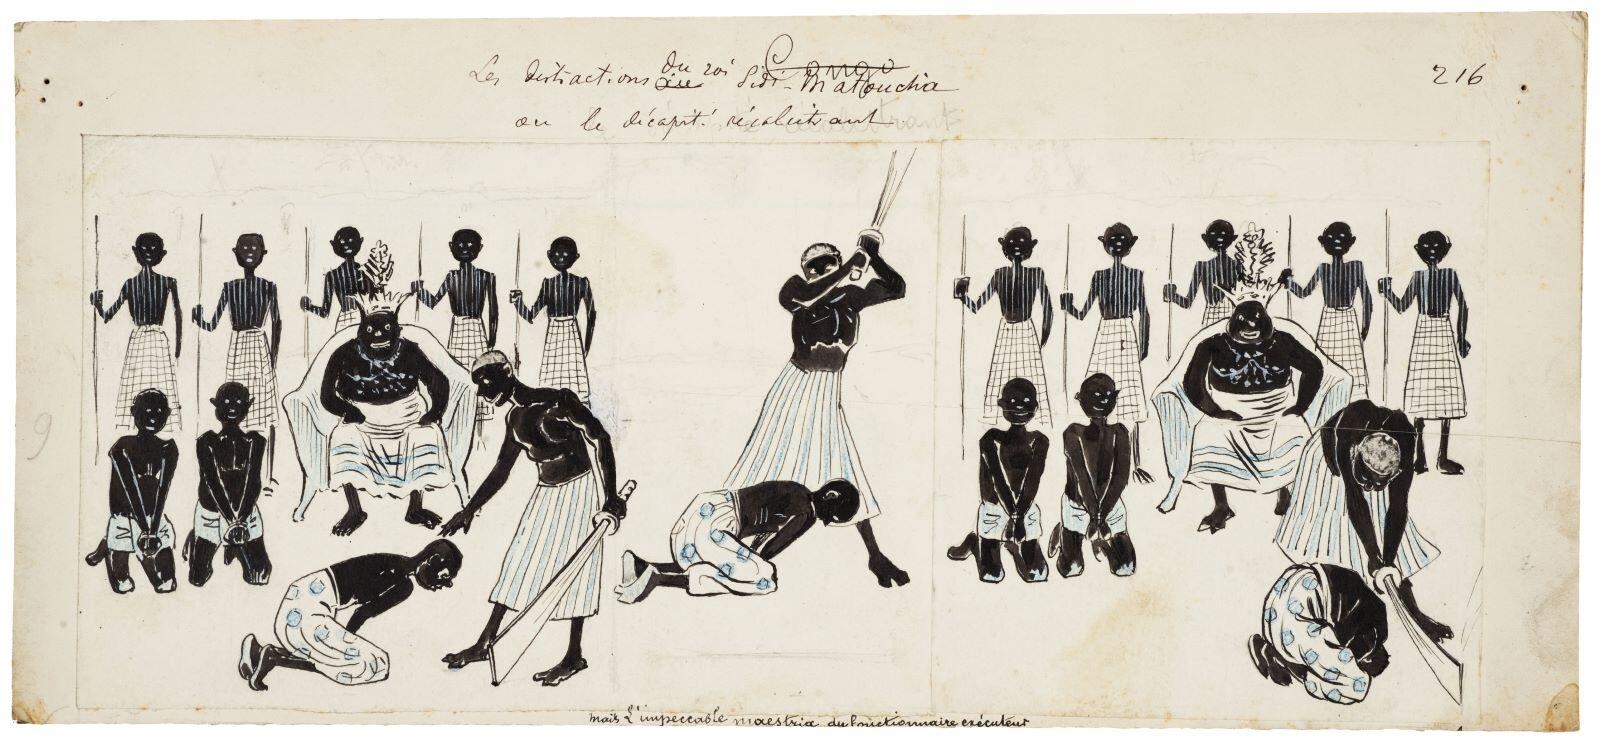 Les distractions du roi Sidi-Matoucha
216
ou le décapité récalcitrant.
9
Mais l'impeccable maestria du fonctionnaire exécuteur